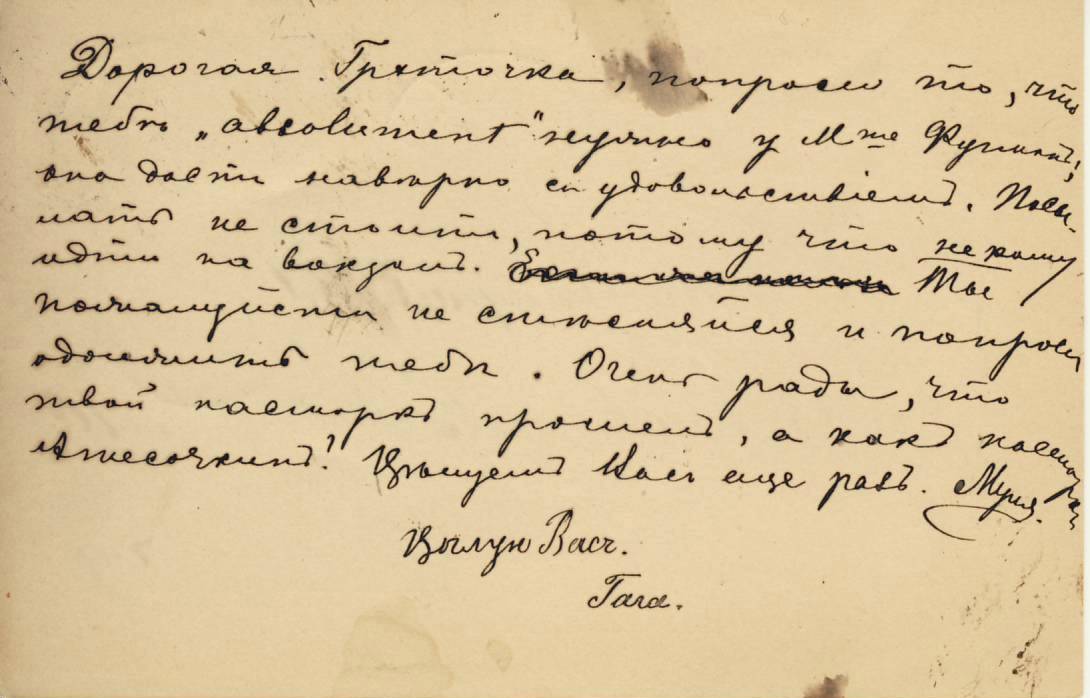 Дорогая Греточка, попроси то, что
тебѣ „absolument" нужно у Мme
она дастъ навѣрно съ удовольствіемъ. Посы-
лать не стоитъ, потому что некому
идти на вокзалъ. Ты
пожалуйста не стѣсняйся и попроси
одолжить тебѣ. Очень рады, что
твой насморкъ прошелъ, а какъ насморкъ
Цѣлуемъ Васъ еще разъ. Муся.
Цѣлую Васъ.
Тата.